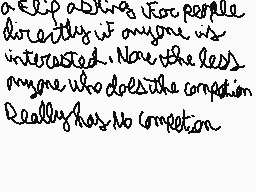 a clip asking for people
directly if anyone is
interested. None the less
anyone who does the compotion
Really has no competion